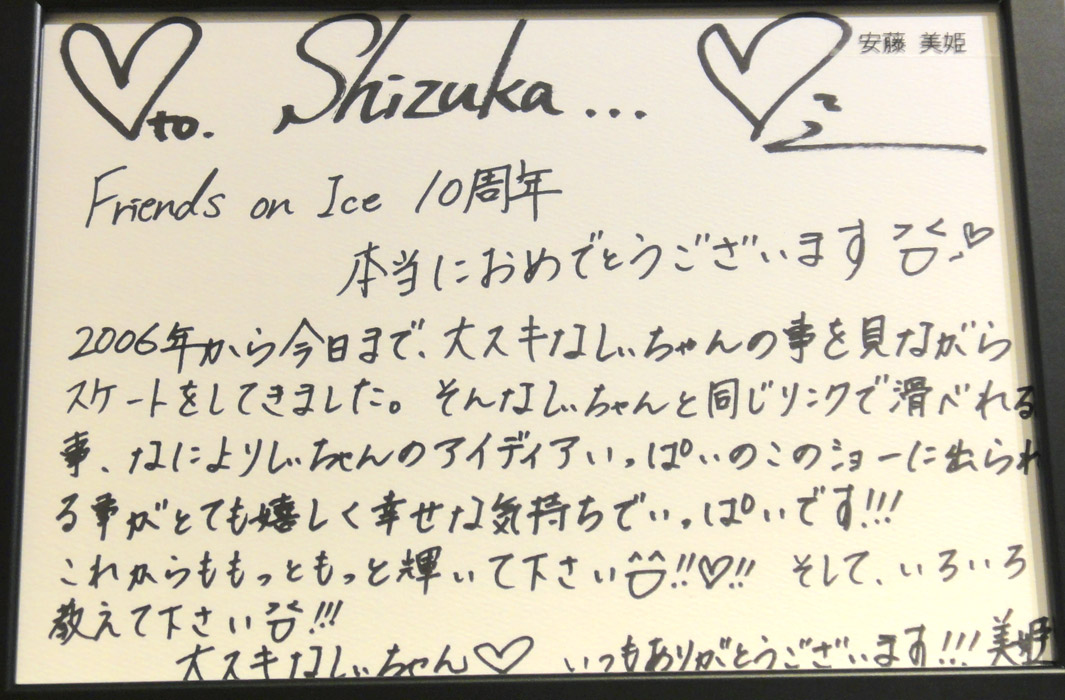 安藤 美姫
to. Shizuka...
Friends on Ice 10周年
本当におめでとうございます
2006年から今日まで、大スキなしぃちゃんの事を見ながら
スケートをしてきました。そんなしぃちゃんと同じリンクで滑べれる
事、なによりしぃちゃんのアイディアいっぱいのこのショーに出られ
る事がとても嬉しく幸せな気持ちでいっぱいです!!!
これからももっともっと輝いて下さい!!♡!! そして、いろいろ
教えて下さい!!!
大スキなしぃちゃん♡ いつもありがとうございます!!! 美姫